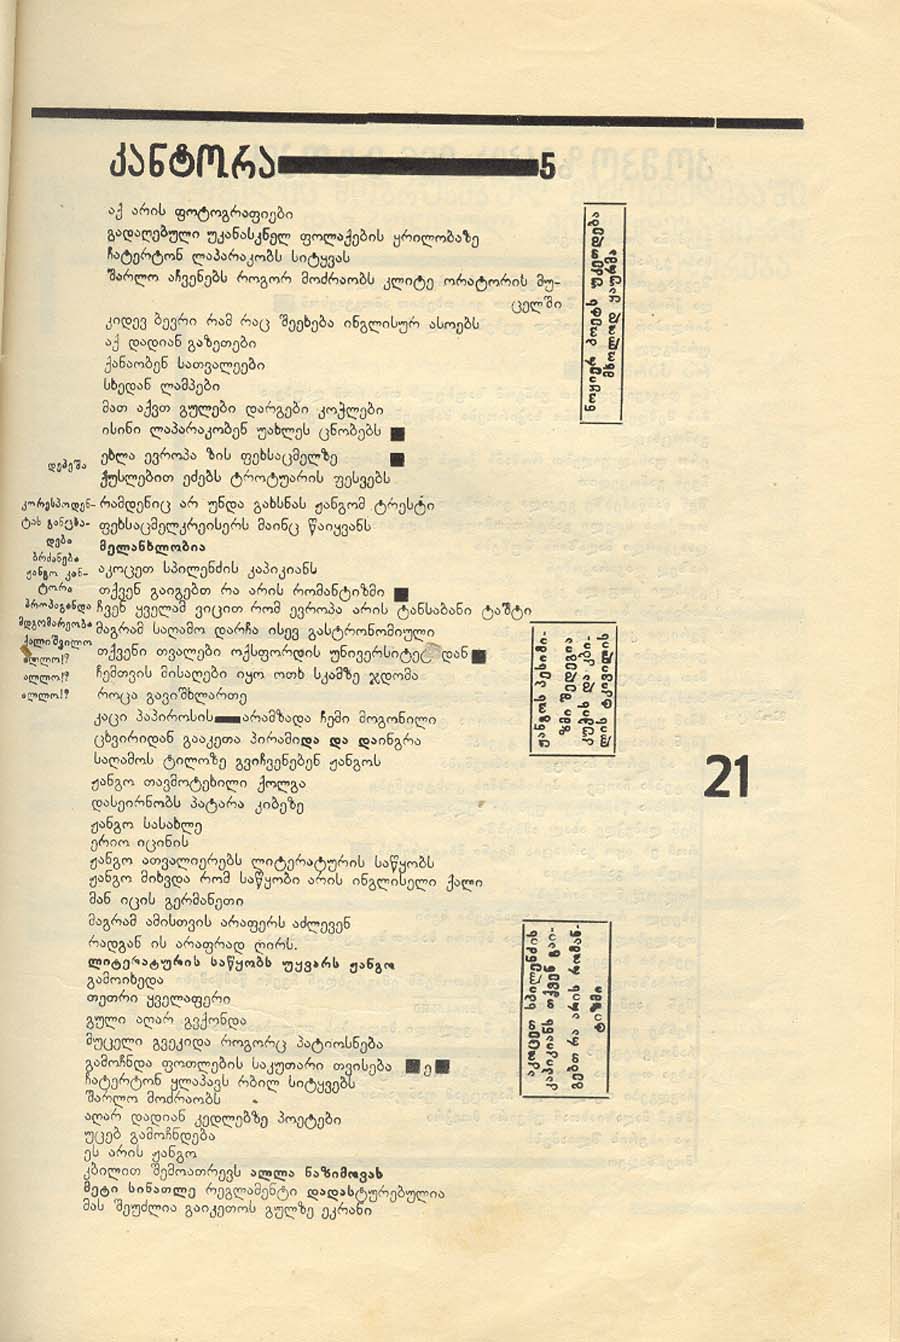 კანტორა 5
აქ არის ფოტოგრაფიები
გადაღებული უკანასკნელ ფოლაქების ყრილობაზე
ჩატერტონ ლაპარაკობს სიტყვას
შარლო აჩვენებს როგორ მოძრაობს კლიტე ორატორის მუ-
ცელში
კიდევ ბევრი რამ რაც შეეხება ინგლისურ ასოებს
აქ დადიან გაზეთები
ქანაობენ სათვალეები
სხედან ლამპები
მათ აქვთ გულები დარგები კოჭლები
ისინი ლაპარაკობენ უახლეს ცნობებს
ნოყიერ პოეტს უკეთდება
მხოლოდ ყაურმა
დეპეშა
ეხლა ევროპა ზის ფეხსაცმელზე
ქუსლებით ეძებს ტროტუარის ფესვებს
კორესპოდენ-
ტის განცხა-
დება
ბრძანება
ჟანგო კან-
ტორა
პროპაგანდა
მდგომარეობა
ქალიშვილო
ალლო!?
ალლო!?
ალლო!?
რამდენიც არ უნდა გახსნას ჟანგომ ტრესტი
ფეხსაცმელკრეისერს მაინც წაიყვანს
მელანხლობია
აკოცეთ სპილენძის კაპიკიანს
თქვენ გაიგებთ რა არის რომანტიზმი
ჩვენ ყველამ ვიცით რომ ევროპა არის ტანსაბანი ტაშტი
მაგრამ საღამო დარჩა ისევ გასტრონომიული
თქვენი თვალები ოქსფორდის უნივერსიტეტ დან
ჩემთვის მისაღები იყო ოთხ სკამზე ჯდომა
როცა გავიშხლართე
კაცი პაპიროსის არამზადა ჩემი მოგონილი
ცხვირიდან გააკეთა პირამიდა და დაინგრა
საღამოს ტილოზე გვიჩვენებენ ჟანგოს
ჟანგო თავმოტეხილი ქოლგა
დასეირნობს პატარა კიბეზე
ჟანგო სასახლე
ერიო იცინის
ჟანგო ათვალიერებს ლიტერატურის საწყობს
ჟანგო მიხვდა რომ საწყობი არის ინგლისელი ქალი
მან იცის გერმანეთი
მაგრამ ამისთვის არაფერს აძლევენ
რადგან ის არაფრად ღირს.
ლიტერატურის საწყობს უყვარს ჟანგო
გამოიხედა
თეთრი ყველაფერი
გული აღარ გვქონდა
მუცელი გვეკიდა როგორც პატიოსნება
გამოჩნდა ფოთლების საკუთარი თვისება ე
ჩატერტონ ყლაპავს რბილ სიტყვებს
შარლო მოძრაობს
აღარ დადიან კედლებზე პოეტები
უცებ გამოჩნდება
ეს არის ჟანგო
კბილით შემოათრევს ალლა ნაზიმოვას
მეტი სინათლე რეგლამენტი დადასტურებულია
მას შეუძლია გაიკეთოს გულზე ეკრანი
ჟანგოს პესიმი-
ზმი შედეგია
კუჭის და კბი-
ლის ტკივილის
21
აკოცეთ სპილენძის
კაპიკიანს თქვენ გაი-
გებთ რა არის რომან-
ტიზმი